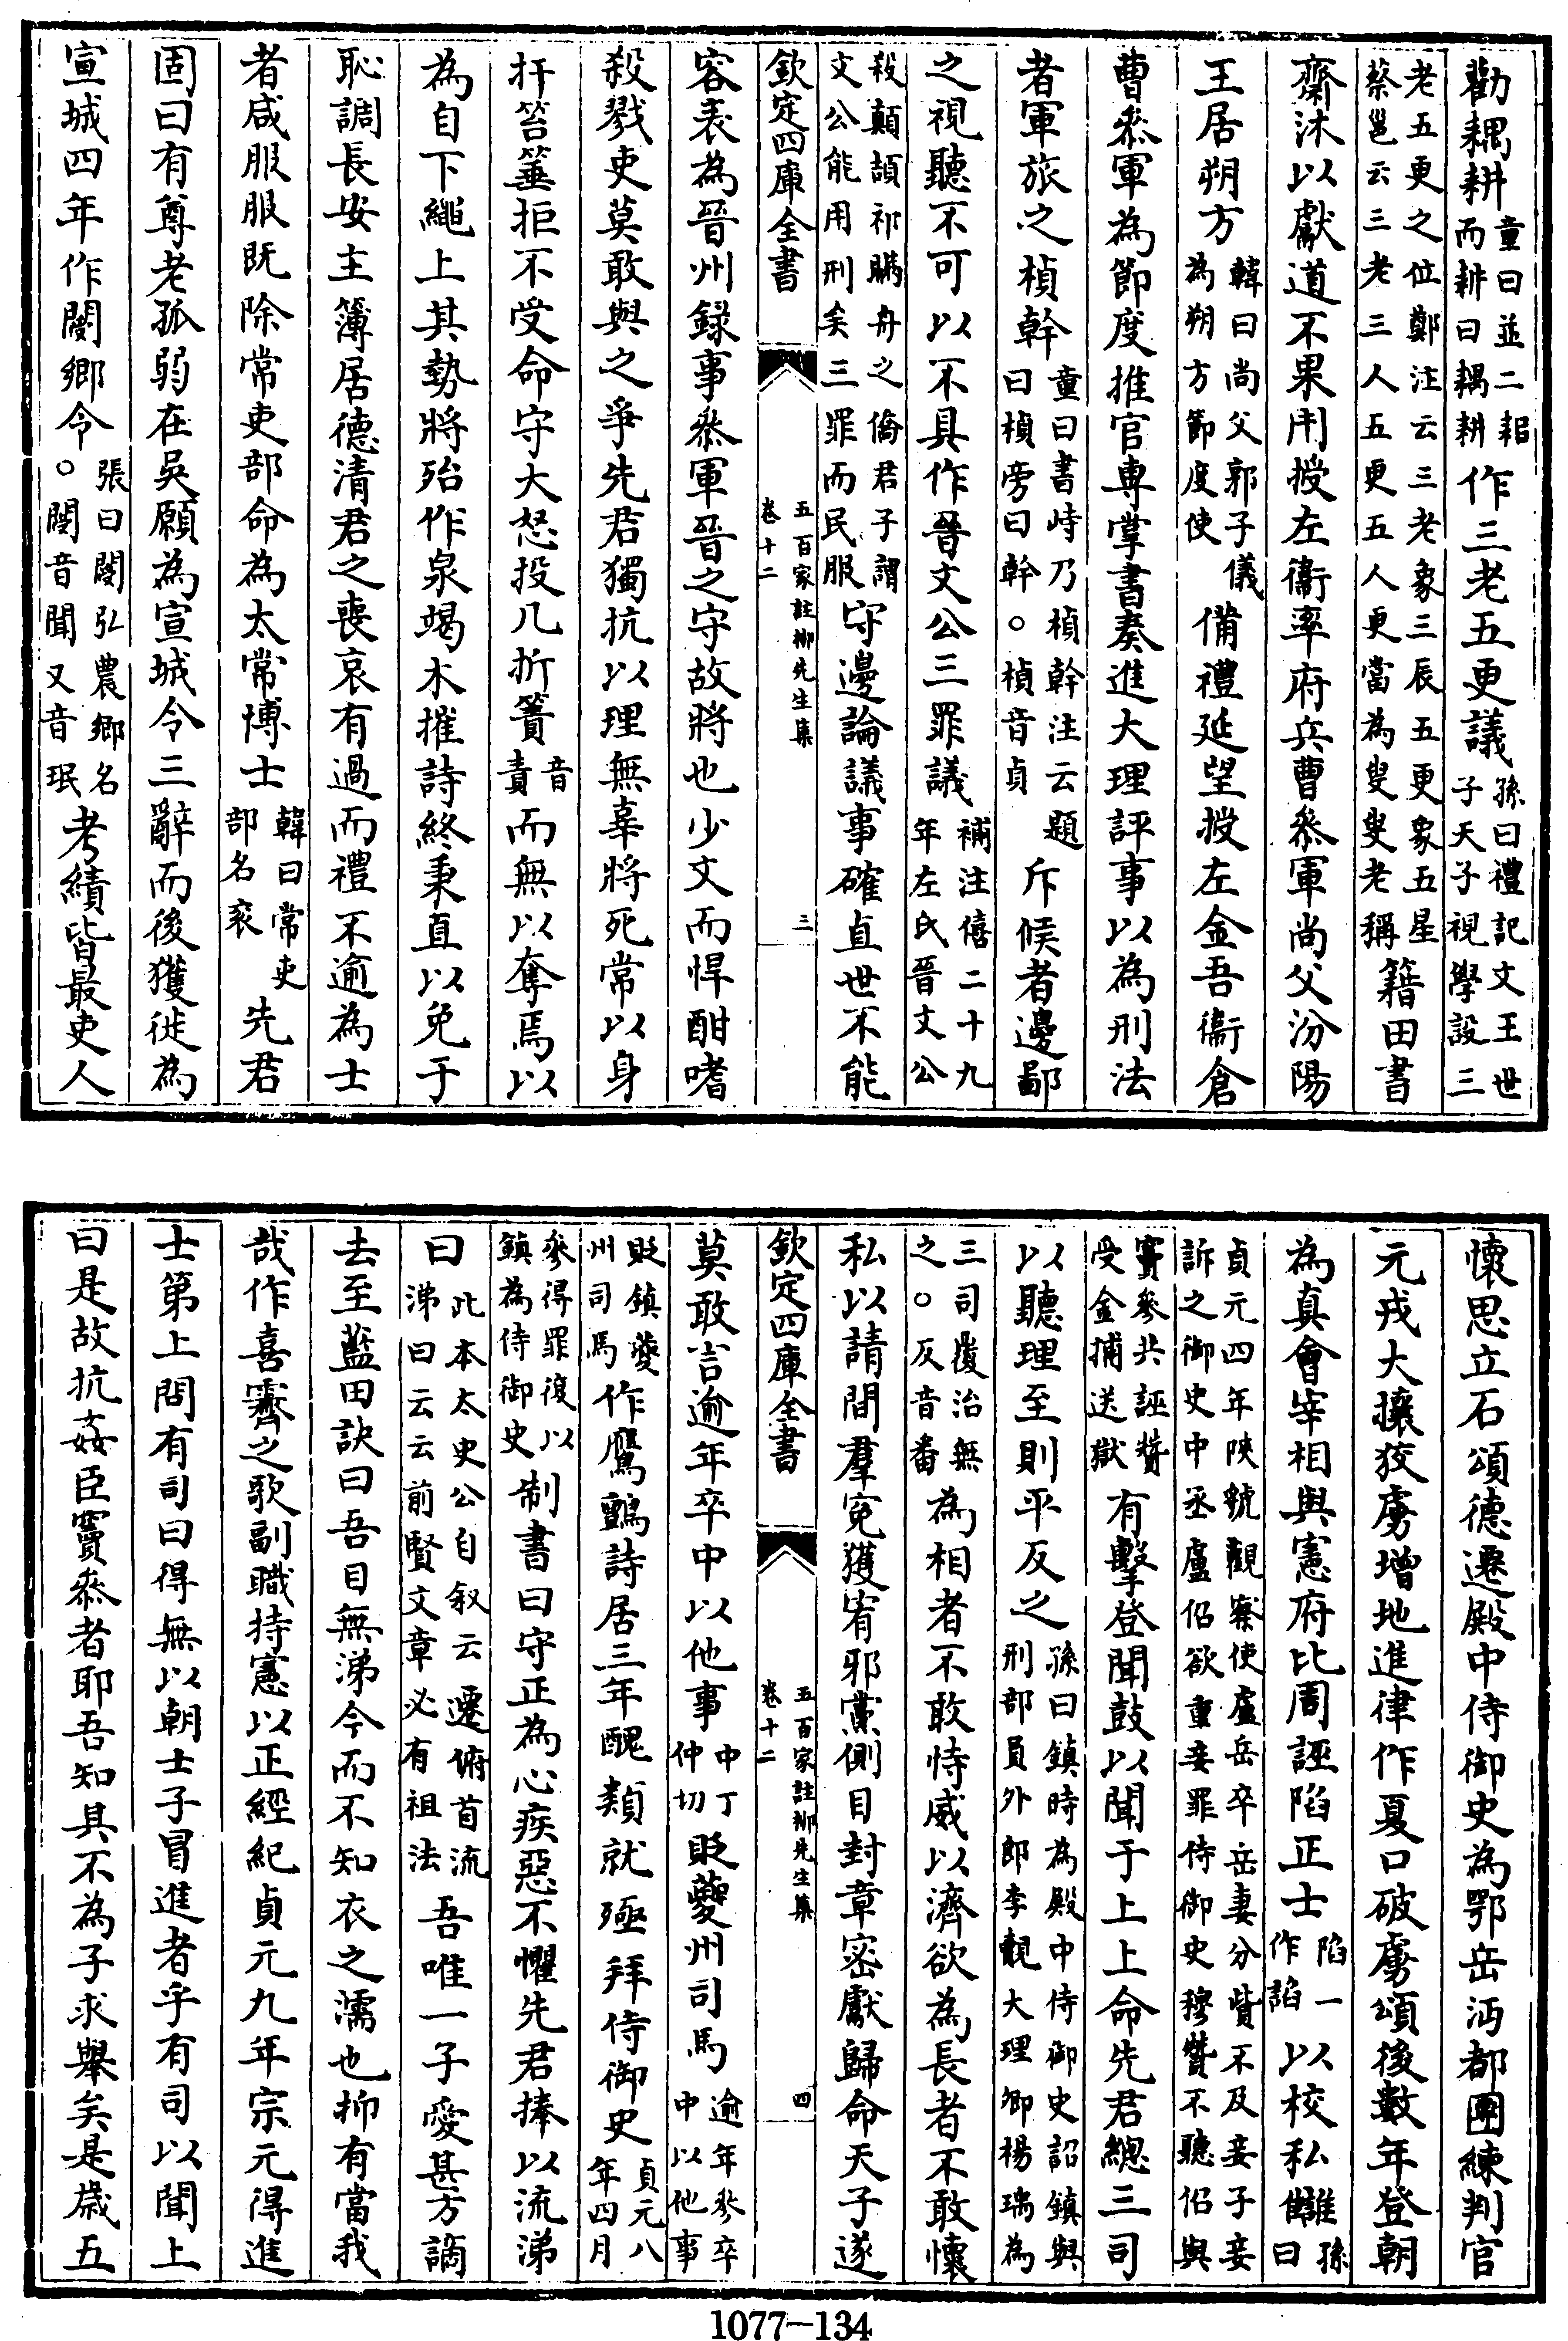 勸耦耕童曰並二耜而耕曰耦耕作三老五更議孫曰禮記文王世子天子視學設三
老五更之位鄭注云三老象三辰五更象五星蔡邕云三老三人五更五人更當為叟叟老稱籍田書
齋沐以獻道不果用授左衞率府兵曹叅軍尚父汾陽
王居朔方韓曰尚父郭子儀為朔方節度使備禮延望授左金吾衞倉
曹叅軍為節度推官專掌書奏進大理評事以為刑法
者軍旅之楨幹童曰書峙乃楨幹注云題曰楨旁曰幹○楨音貞斥候者邊鄙
之視聽不可以不具作晉文公三罪議補注僖二十九年左氏晉文公
殺顛頡祁瞞舟之僑君子謂文公能用刑矣三罪而民服守邊論議事確直世不能
欽定四庫全書
五百家註柳先生集卷十二
三
容表為晉州録事叅軍晉之守故將也少文而悍酣嗜
殺戮吏莫敢與之爭先君獨抗以理無辜將死常以身
扞笞箠拒不受命守大怒投几折簀音責而無以奪焉以
為自下繩上其勢將殆作泉竭木摧詩終秉直以免于
恥調長安主簿居德清君之喪哀有過而禮不逾為士
者咸服服旣除常吏部命為太常博士韓曰常吏部名衮先君
固曰有尊老孤弱在吳願為宣城令三辭而後獲徙為
宣城四年作閿鄉令○張曰閿弘農鄉名閿音聞又音珉考績皆最吏人
懷思立石頌德遷殿中侍御史為鄂岳沔都團練判官
元戎大攘狡虜增地進律作夏口破虜頌後數年登朝
為真會宰相與憲府比周誣陷正士陷一作諂以校私讎孫曰
貞元四年陜虢觀察使盧岳卒岳妻分貲不及妾子妾訴之御史中丞盧佋欲重妾罪侍御史穆贊不聽佋與
竇參共誣贊受金捕送獄有擊登聞鼓以聞于上上命先君總三司
以聽理至則平反之孫曰鎮時為殿中侍御史詔鎮與刑部員外郎李覯大理卿楊瑀為
三司覆治無之○反音番為相者不敢恃威以濟欲為長者不敢懷
私以請間羣寃獲宥邪黨側目封章密獻歸命天子遂
欽定四庫全書
五百家註柳先生集卷十二
四
莫敢言逾年卒中以他事中丁仲切貶夔州司馬逾年參卒中以他事
貶鎮夔州司馬作鷹鸇詩居三年醜類就殛拜侍御史貞元八年四月
參得罪復以鎮為侍御史制書曰守正為心疾惡不懼先君捧以流涕
曰此本太史公自叙云遷俯首流涕曰云云前賢文章必有祖法吾唯一子愛甚方謫
去至藍田訣曰吾目無涕今而不知衣之濡也抑有當我
哉作喜霽之歌副職持憲以正經紀貞元九年宗元得進
士第上問有司曰得無以朝士子冒進者乎有司以聞上
曰是故抗姦臣竇叅者耶吾知其不為子求舉矣是歲五
1077-134